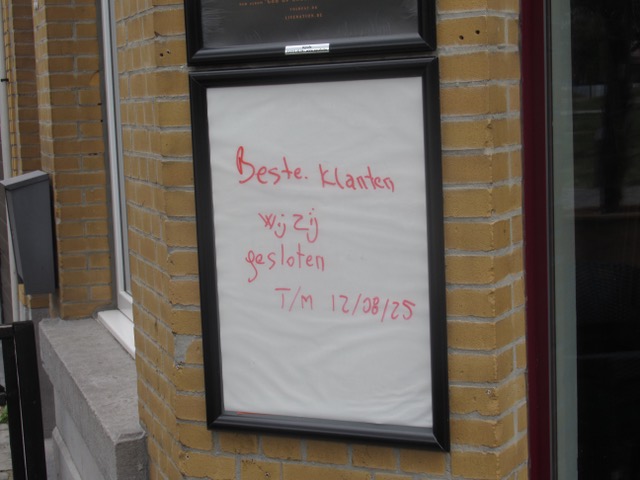 Beste. klanten
wij zij
gesloten
T/M 12/08/25